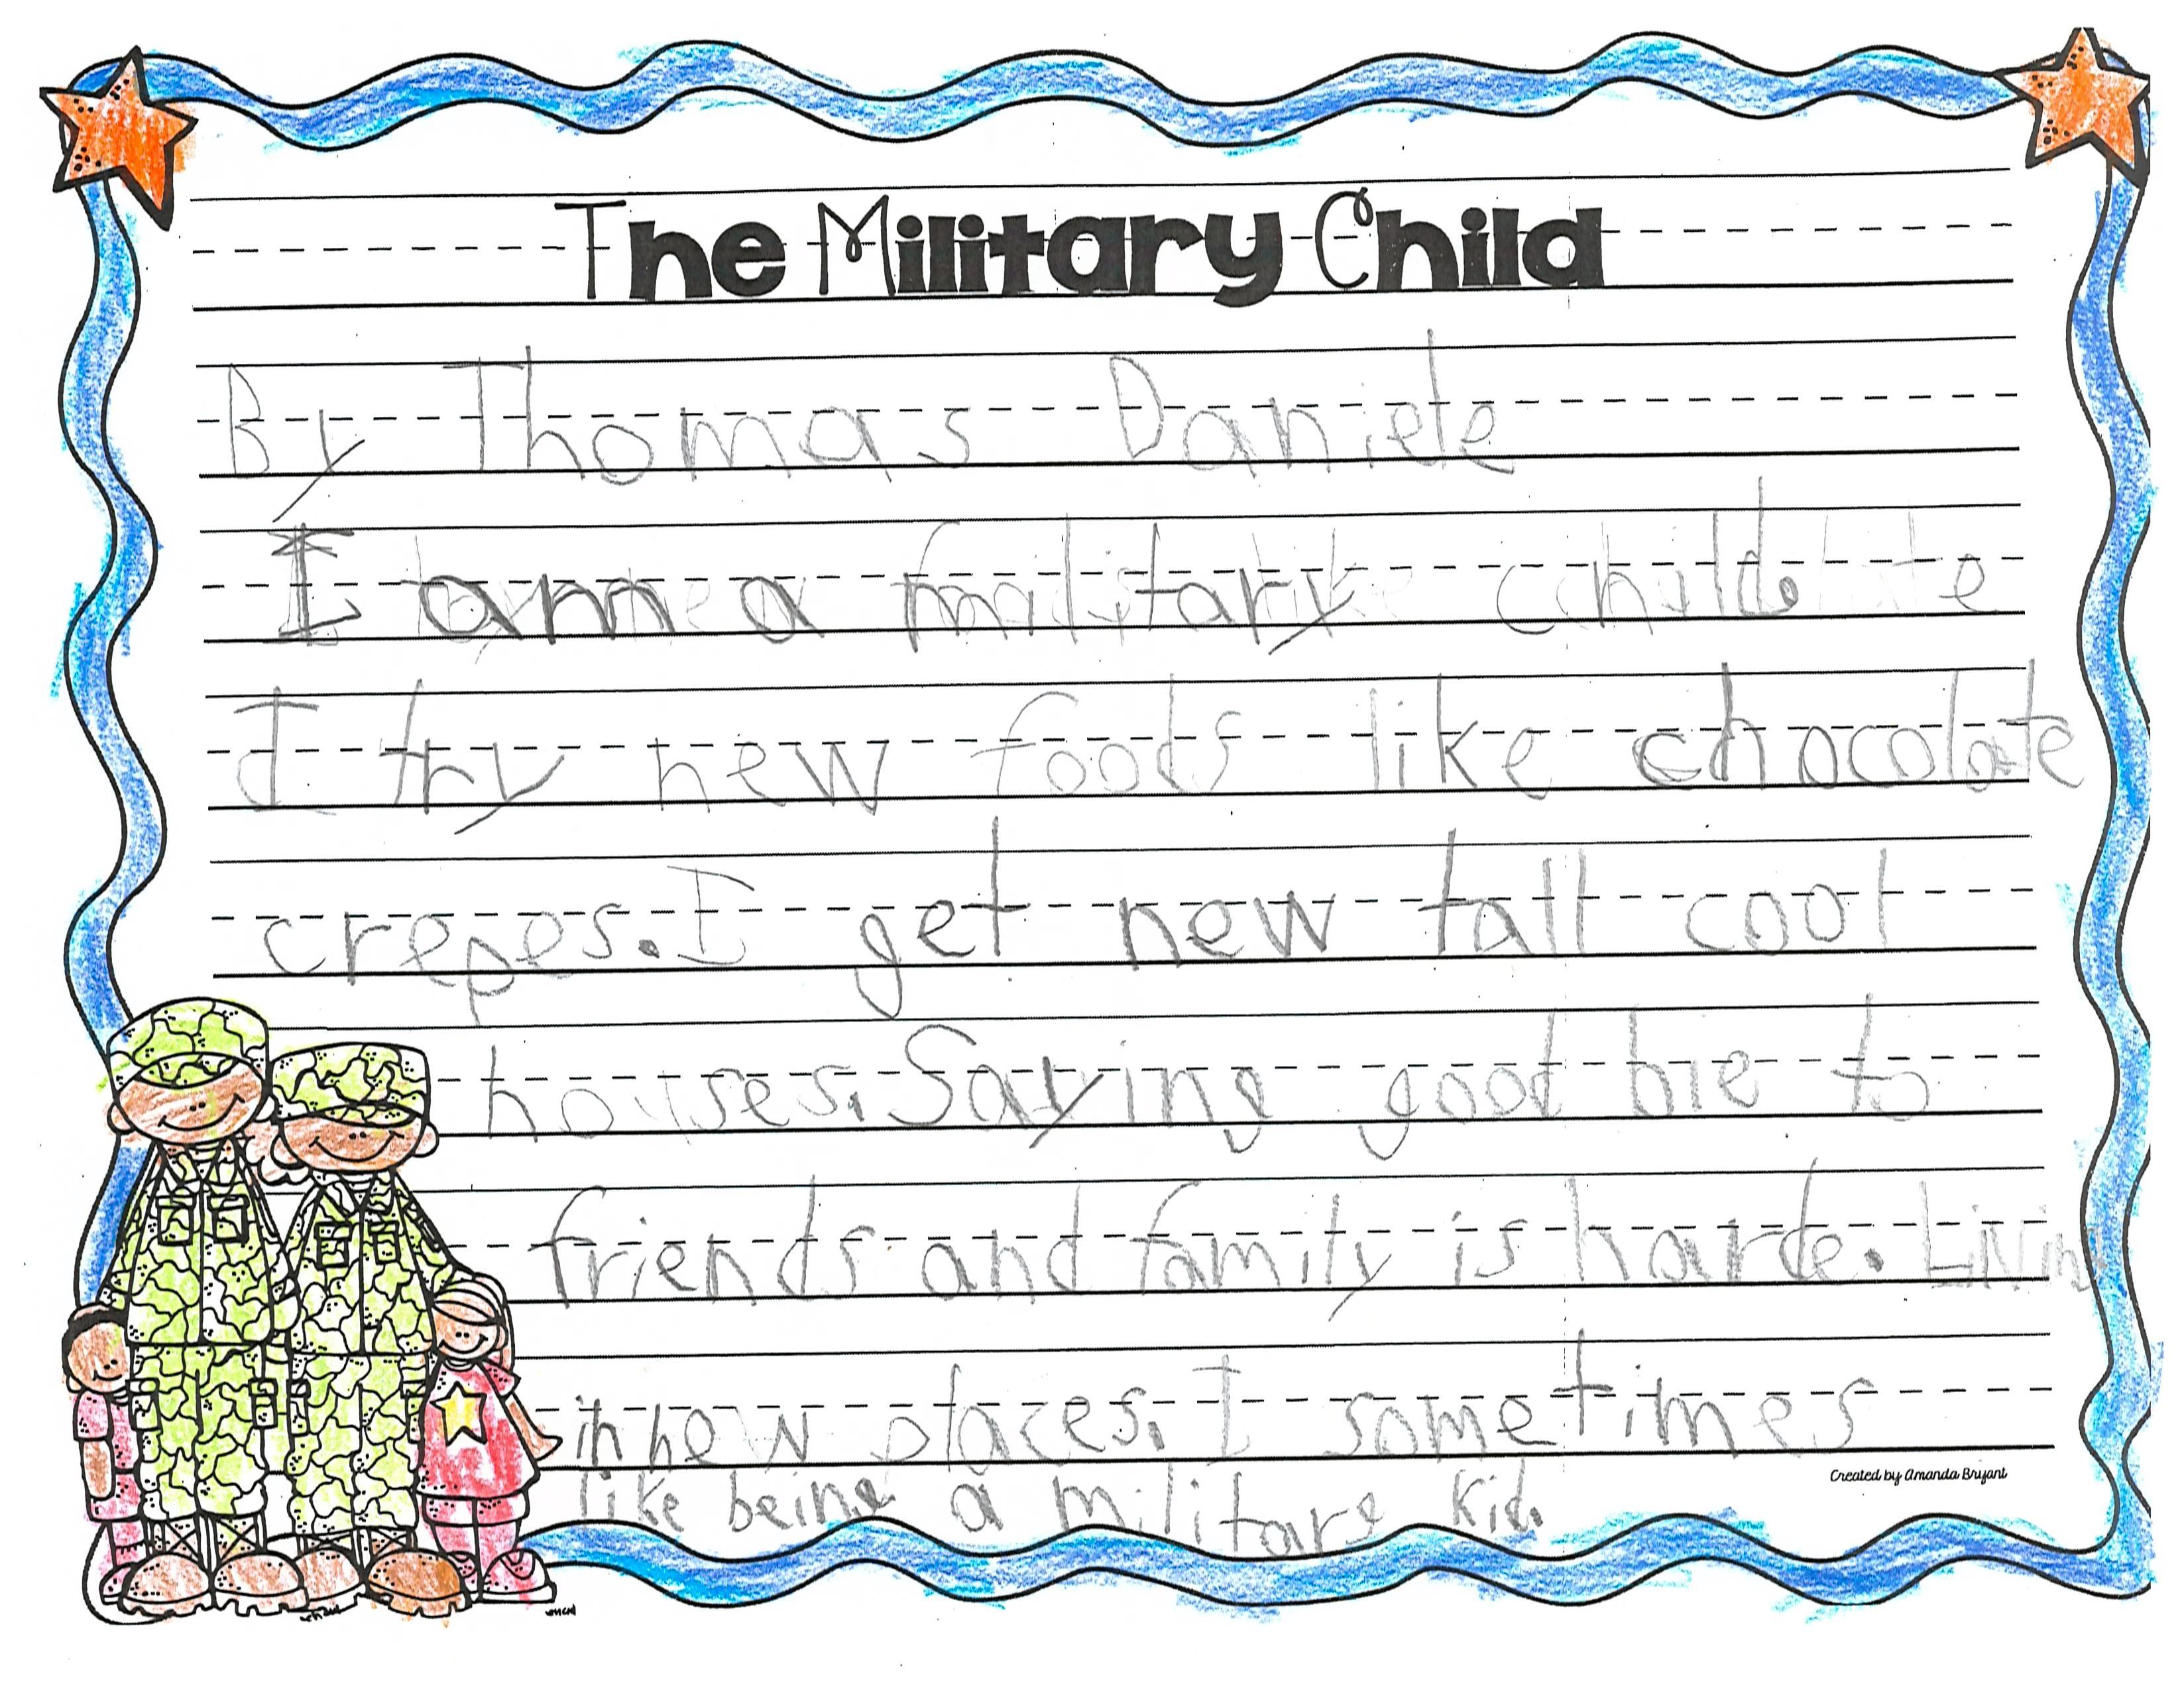 The Military Child
By Thomas Daniele
I am a military child.
I try new foods like chocolate
crepes. I get new tall cool
houses. Saying good bie to
friends and family is harde. Living
in new places. I sometimes
Created by Amanda Bryant
like being a military kid.